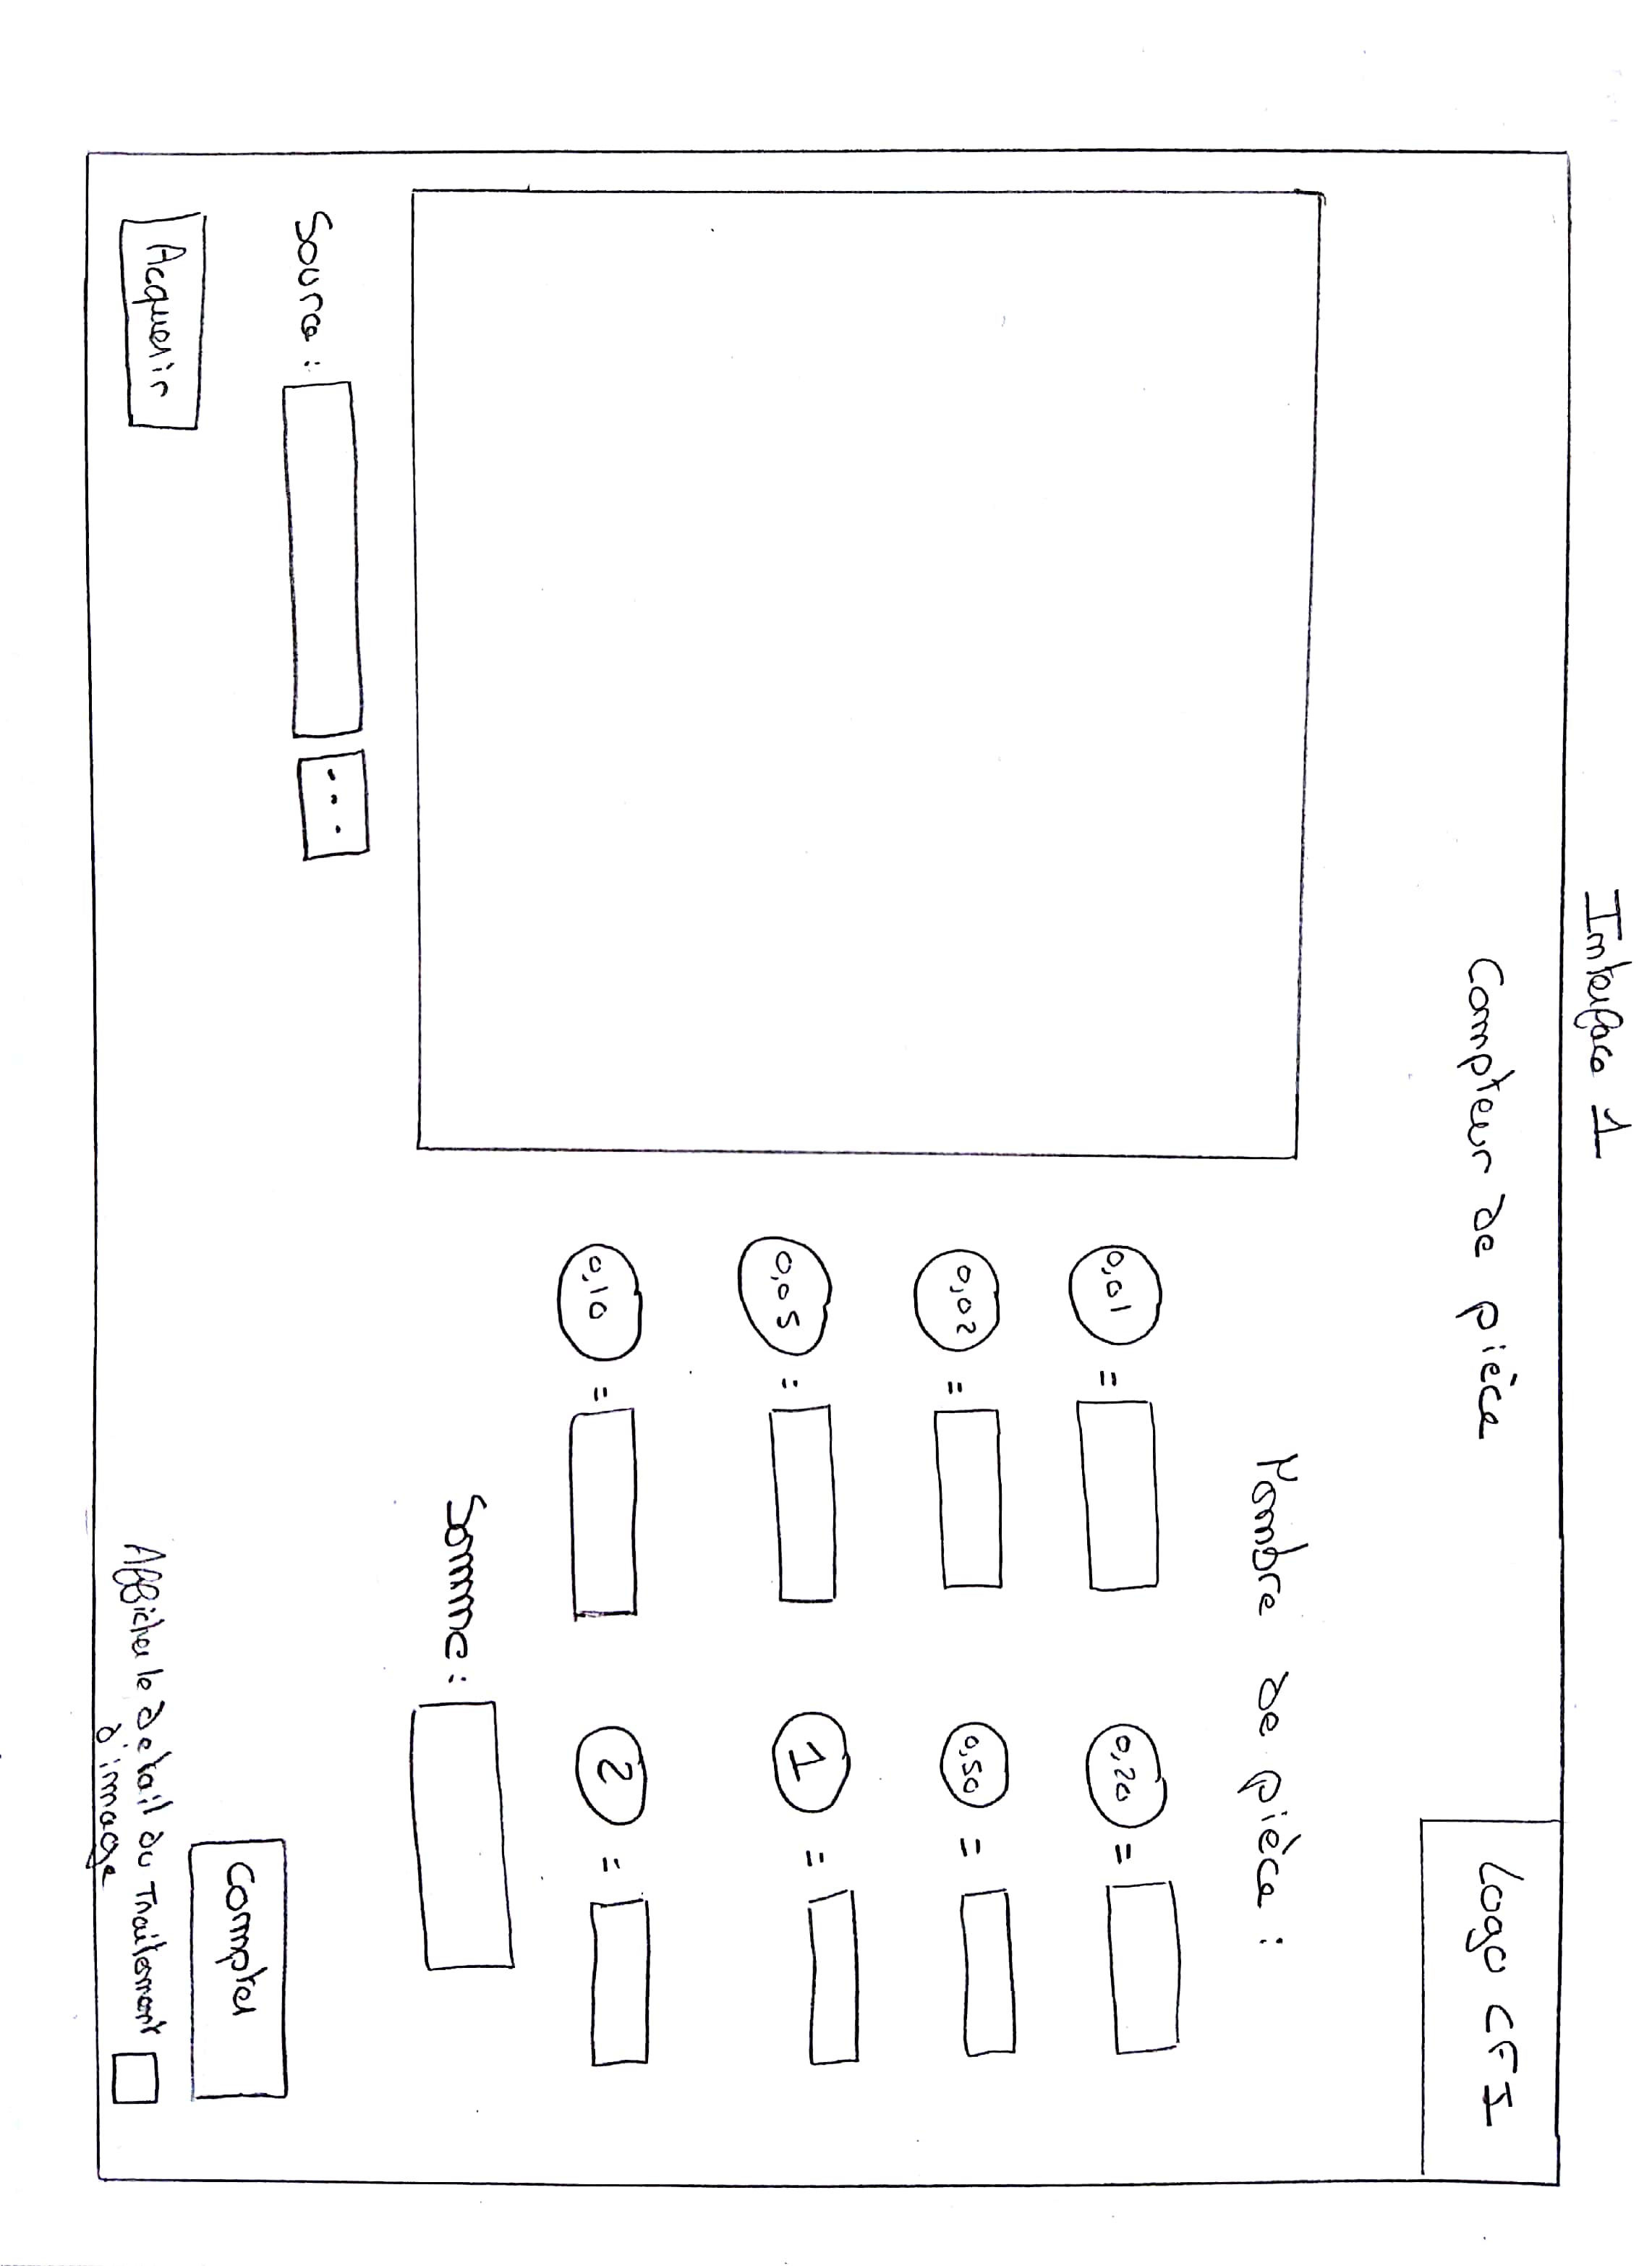 Interface 1
Compteur de pièce
Logo CFI
Nombre de pièce :
0,01 =
0,20 =
0,02 =
0,50 =
0,05 =
1 =
0,10 =
2 =
Somme :
Source :
...
Compter
Acquerir
Afficher le detail du Traitement
d'image